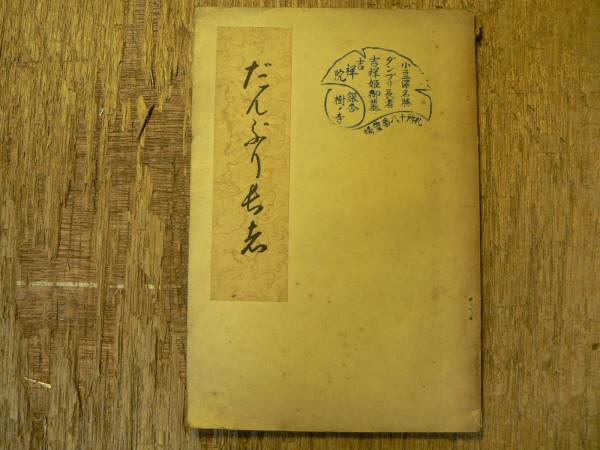 だんぶり長者
小豆澤名勝
ダンブリ長者
吉祥姫御墓
吉祥院
銀杏樹ノ寺
札所十八番霊場